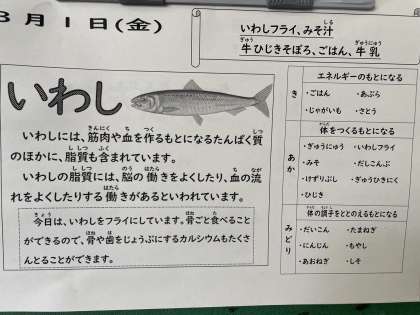 3月1日(金)
いわしフライ、みそ汁
牛ひじきそぼろ、ごはん、牛乳
いわし
いわしには、筋肉や血を作るもとになるたんぱく質
のほかに、脂質も含まれています。
いわしの脂質には、脳の働きをよくしたり、血の流
れをよくしたりする働きがあるといわれています。
今日は、いわしをフライにしています。骨ごと食べること
ができるので、骨や歯をじょうぶにするカルシウムもたくさ
んとることができます。
き
エネルギーのもとになる
・ごはん ・あぶら
・じゃがいも ・さとう
あか
体をつくるもとになる
・ぎゅうにゅう ・いわしフライ
・みそ ・だしこんぶ
・けずりぶし ・ぎゅうひきにく
・ひじき
みどり
体の調子をととのえるもとになる
・だいこん ・たまねぎ
・にんじん ・もやし
・あおねぎ ・しそ